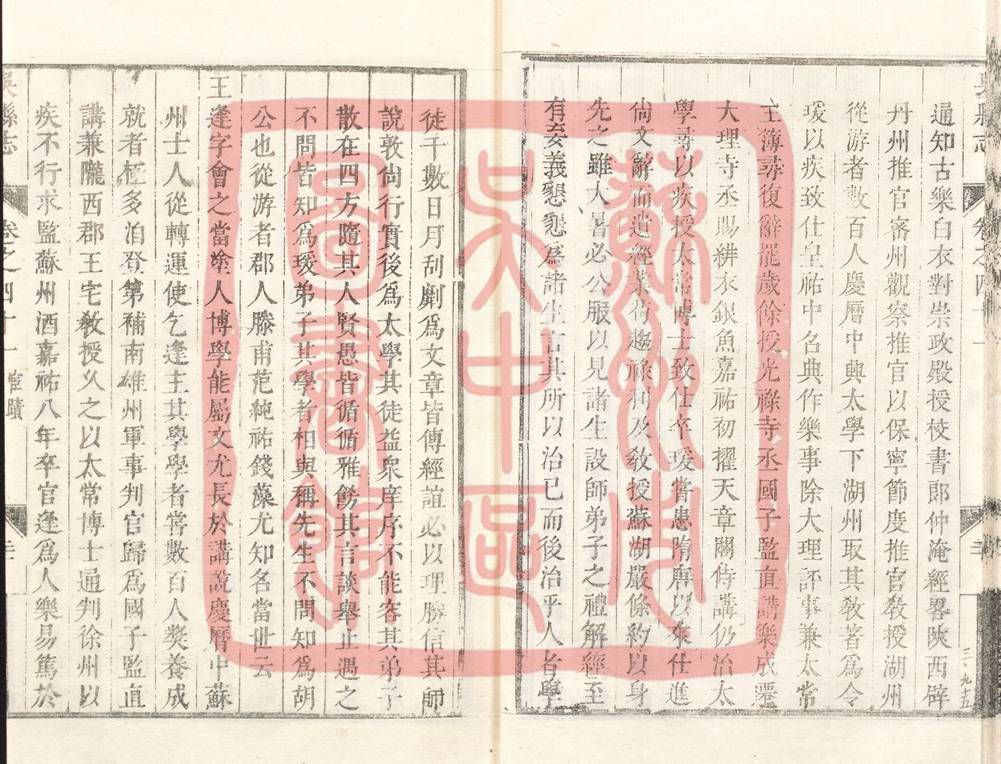 通知古樂白衣對崇政殿授校書郎仲淹經畧陝西辟
丹州推官密州觀察推官以保寧節度推官敎授湖州
從游者數百人慶曆中興太學下湖州取其敎著爲令
瑗以疾致仕皇祐中名典作樂事除大理評事兼太常
主簿尋復辭罷歲餘授光祿寺丞國子監直講樂成遷
大理寺丞賜緋衣銀魚嘉祐初擢天章閣侍講仍治太
學尋以疾授太常博士致仕卒瑗嘗患隋唐以來仕進
尙文辭而遺經業苟趨祿利及敎授蘇湖嚴條約以身
先之雖大暑必公服以見諸生設師弟子之禮解經至
有妄義懇懇爲諸生言其所以治已而後治乎人者學
三·九十五
吳縣志 卷之四十一 宦蹟
徒千數日月刮劘爲文章皆傳經誼必以理勝信其師
說敦尙行實後爲太學其徒益衆庠序不能容其弟子
散在四方隨其人賢愚皆循循雅飭其言談舉止遇之
不問皆知爲瑗弟子其學者相與稱先生不問知爲胡
公也從游者郡人滕甫范純祐錢藻尤知名當世云
王逢字會之當塗人博學能屬文尤長於講說慶曆中蘇
州士人從轉運使乞逢主其學學者常數百人奬養成
就者極多洎登第補南雄州軍事判官歸爲國子監直
講兼隴西郡王宅敎授久之以太常博士通判徐州以
疾不行求監蘇州酒嘉祐八年卒官逢爲人樂易篤於
蘇州市
吳中區
圖書館